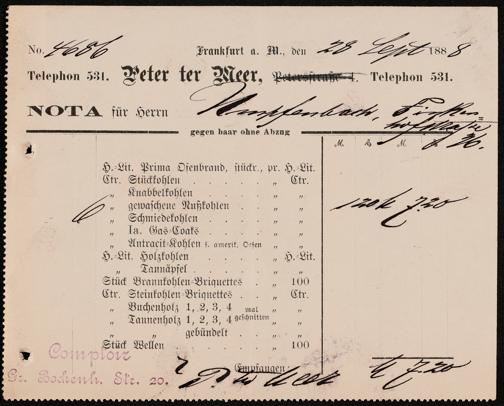 No. 4686 Frankfurt a. M., den 28 Sept 1888
Telephon 531. Peter ter Meer, Petersstraße 4. Telephon 531.
NOTA für Herrn Umpfenbach,
gegen baar ohne Abzug
M. M. ₰
H.-Lit. Prima Ofenbrand, stückr., pr. H.-Lit.
Ctr. Stückkohlen . . . . „ Ctr.
„ Knabbelkohlen . . . „ „
6 „ gewaschene Nußkohlen . „ „ 120 7.20
„ Schmiedekohlen . . . „ „
„ Ia. Gas-Coaks . . . „ „
„ Antracit-Kohlen f. amerik. Ofen „ „
H.-Lit. Holzkohlen . . . „ H.-Lit.
„ Tannäpfel . . . . „ „
Stück Braunkohlen-Briquettes . „ 100
Ctr. Steinkohlen-Briquettes . . „ Ctr.
„ Buchenholz 1, 2, 3, 4 mal „ „
„ Tannenholz 1, 2, 3, 4 geschnitten „ „
„ „ gebündelt . „ „
Stück Wellen . . . . „ 100
Comptoir
Gr. Bockenh. Str. 20.
Empfangen: 7.20
P. ter Meer